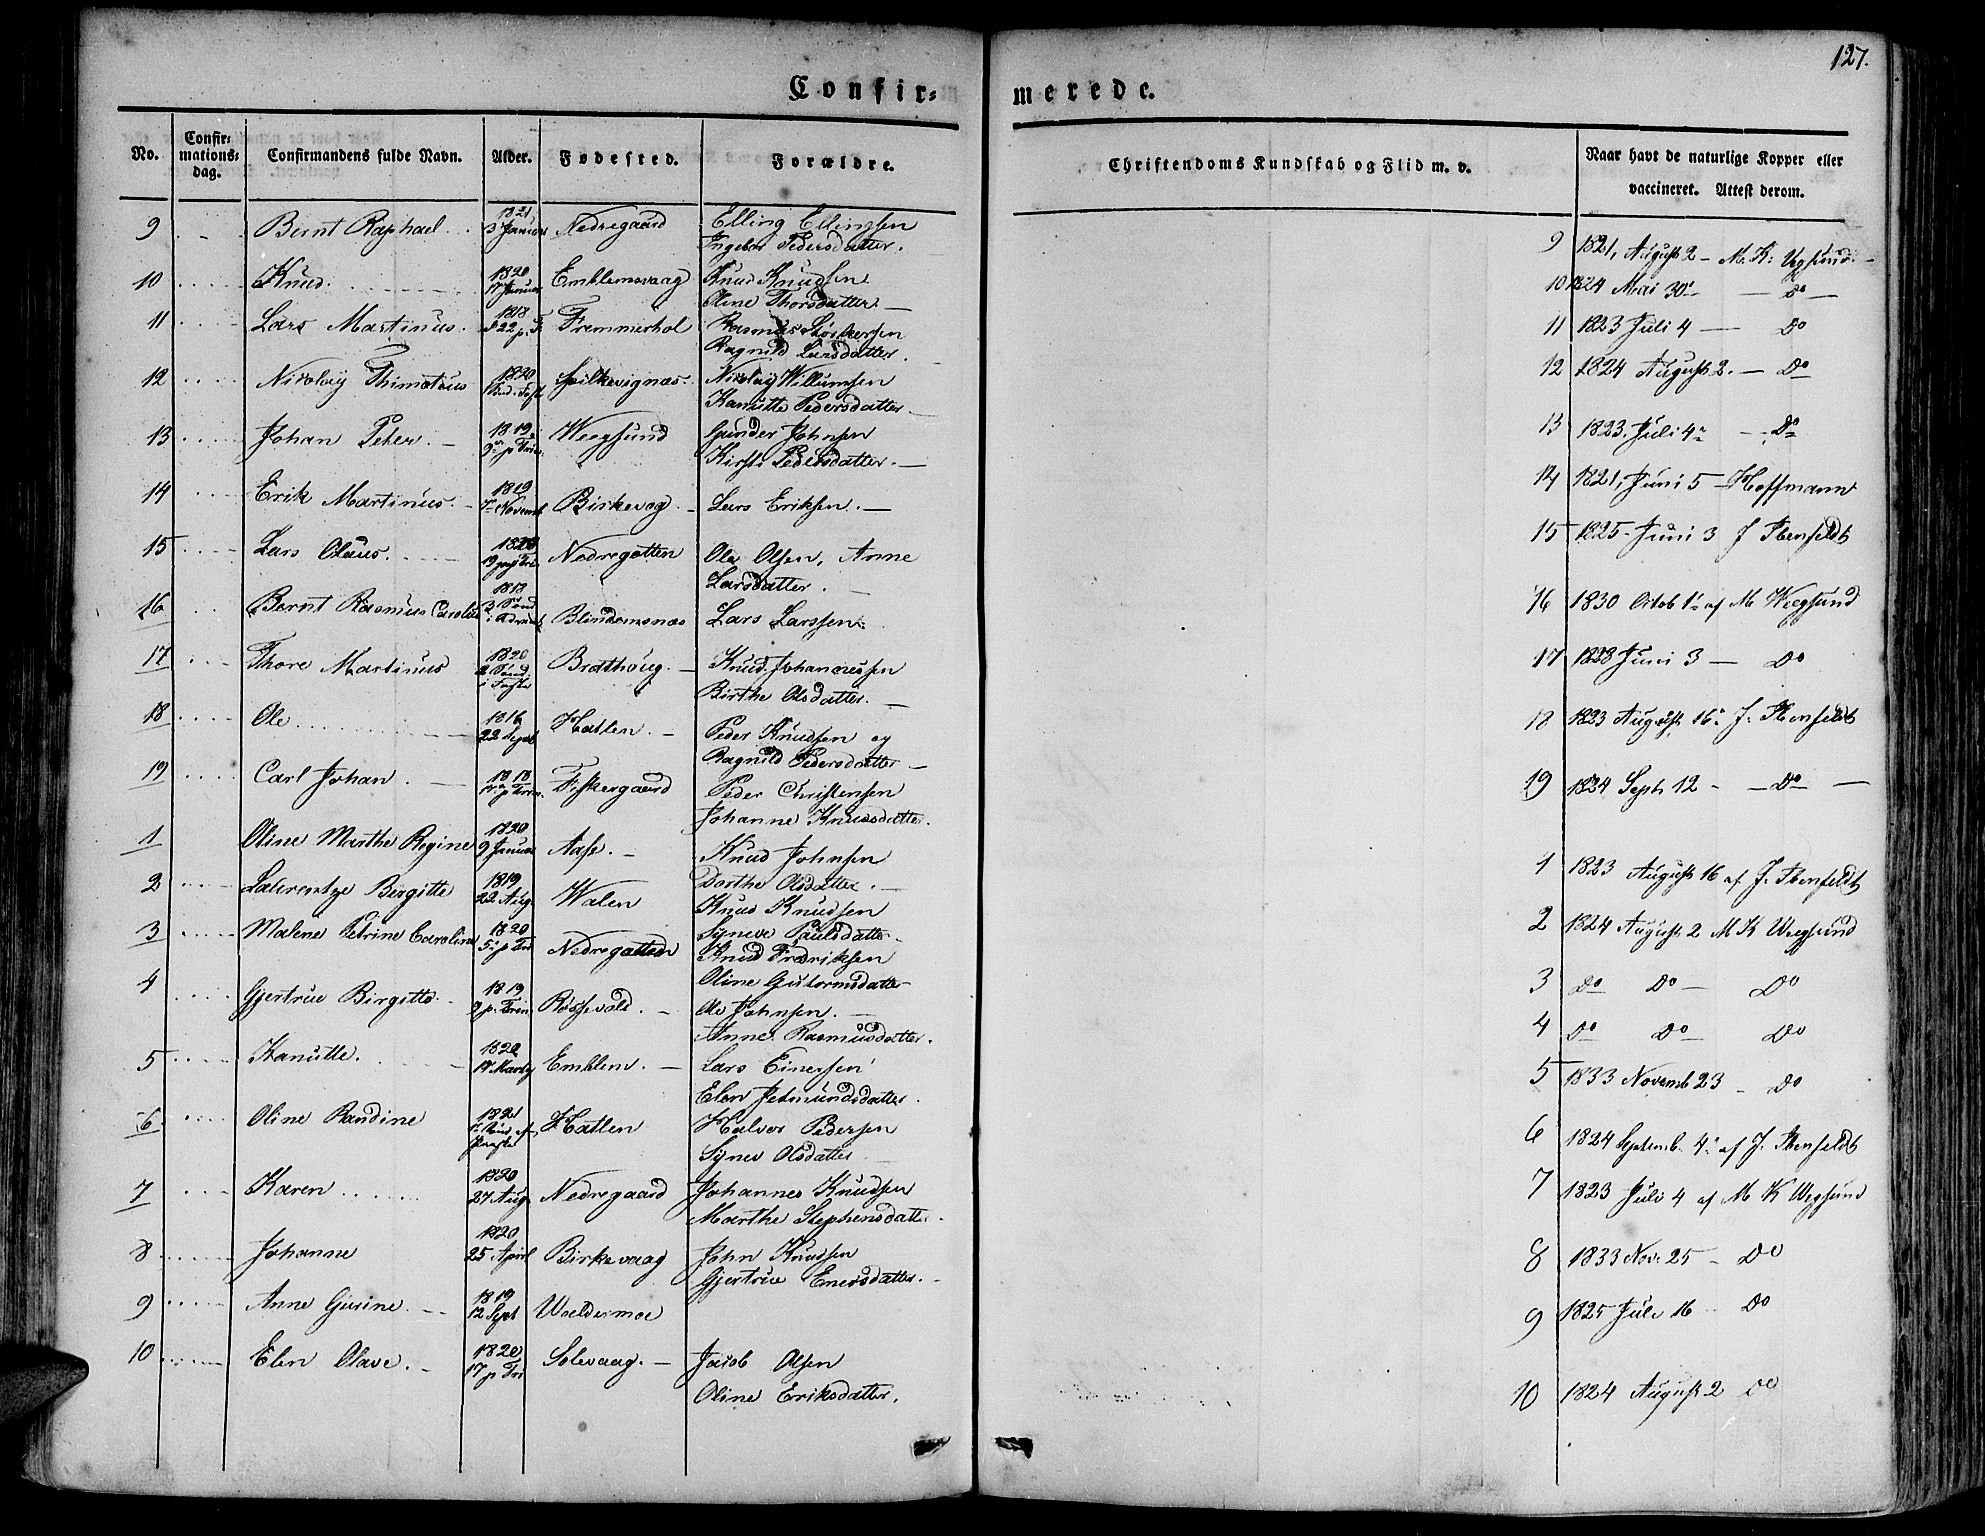 127.
Confir- merede.
No. Confir-mations-dag. Confirmandens fulde Navn. Alder. Fødested. Forældre. Christendoms Kundskab og Flid m. v. Naar havt de naturlige Kopper eller vaccineret. Attest derom.
9 Bernt Raphael 1821 3 Januar Nedregaard Elling Ellingsen
Ingebor Pedersdatter. 9 1821, August 2 – M. K: Vegsund.
10 Knud 1820 17 Januar Emblemsvaag Knud Knudsen
Oline Thorsdatter 10 1824 Mai 30' Do
11 Lars Martinus 1818 d 22 p. T. Fremmerhol Rasmus
Ragnild Larsdatter. 11 1823 Juli 4 Do
12 Nicolay Thimoteus 1820 Nicolay Willumsen
Kanutte Pedersdatter 12 1824 August 2. Do
13 Johan Peter. 1819 9 p Trin. Weegsund Gunder Johnsen
Kirsti Pedersdatter 13 1823 Juli 4 Do
14 Erik Martinus. 1819 7 Novemb Birkevog Lars Eriksen. 14 1821, Juni 5 – Hoffmann
15 Lars Olaus. 1820 Nedregotten Ole Olsen, Anne
Larsdatter. 15 1825 Juni 3 J Ibenfeldt
16 Bernt Rasmus Caroli 1818 3 Sønd i Advent Blindemsnæs Lars Larssen 16 1830 Octob 1 af M Weegsund
17 Thore Martinus 1820 2 Sønd i Faste Bratthoug. Knud Johannessen
Birthe Olsdatter. 17 1823 Juni 3 Do
18 Ole 1816 22 Sept Hatlen. Peder Knudsen og
Ragnild Pedersdatter 18 1823 August 16 J. Ibenfeldt
19 Carl Johan. 1818 p Trin. Fiskergaard Peder Christensen
Johanne Knudsdatter. 19 1824 Septr 12 Do
1 Oline Marthe Regine 1820 9 Januar Aase. Knud Johnsen
Dorthe Olsdatter. 1 1823 August 16 af J. Ibenfeldt
2 Laurentze Bergitte 1819 22 Aug. Walen Knud Knudsen
Syneve Paulsdatter 2 1824 August 2 M K Weegsund
3 Malene Petrine Caroline 1820 5 p Tri Nedregotten Knud Fredriksen
Oline Gutormsdatter 3 Do Do Do
4 Gjertrue Birgitte. 1819 9 p. Trin. Røssevold. Ole Johnsen.
Anne Rasmusdatter. 4 Do Do Do
5 Kanutte. 1820 17 Marty Emblem. Lars Einersen
Elen Jetmundsdatter. 5 1833 Novemb 23 Do
6 Oline Randine 1821 Hatlen Halvor Pedersen
Synev Olsdatter 6 1824 Septemb. 4 af J. Ibenfeldt
7 Karen 1820 27 Aug. Nedregaard Johannes Knudsen
Marthe Stephensdatter. 7 1823 Juli 4 af M K Wegsund
8 Johanne 1820 25 April Birkevaag John Knudsen
Gjertrue Enersdatter. 8 1833 Nov: 25 Do
9 Anne Gurine. 1819 12 Sept Waldermoe 9 1825 Juli 16 Do
10 Elen Olave. 1820 17 p Tri Solevaag. Jacob Olsen
Oline Eriksdatter. 10 1824 August 2 Do